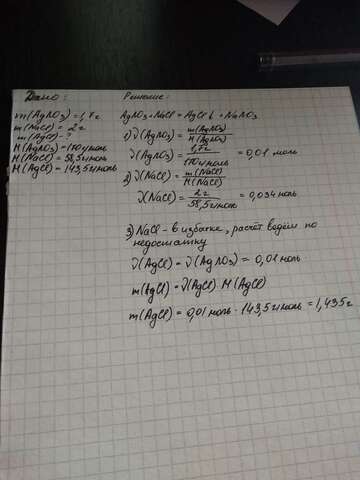 Дано:
m(AgNO₃) = 1,7г
m(NaCl) = 2г
m(AgCl) - ?
M(AgNO₃) = 170г/моль
M(NaCl) = 58,5г/моль
M(AgCl) = 143,5г/моль
Решение:
AgNO₃ + NaCl = AgCl↓ + NaNO₃
1) ν(AgNO₃) = m(AgNO₃) / M(AgNO₃)
ν(AgNO₃) = 1,7г / 170г/моль = 0,01 моль
2) ν(NaCl) = m(NaCl) / M(NaCl)
ν(NaCl) = 2г / 58,5г/моль = 0,034моль
3) NaCl - в избытке, расчёт ведём по
недостатку
ν(AgCl) = ν(AgNO₃) = 0,01моль
m(AgCl) = ν(AgCl) · M(AgCl)
m(AgCl) = 0,01моль · 143,5г/моль = 1,435г